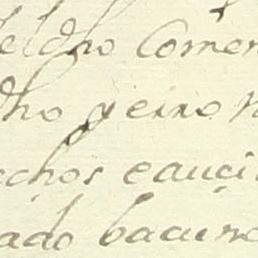 eldho Comen
dho yerno
echos eauçi
ado bacino